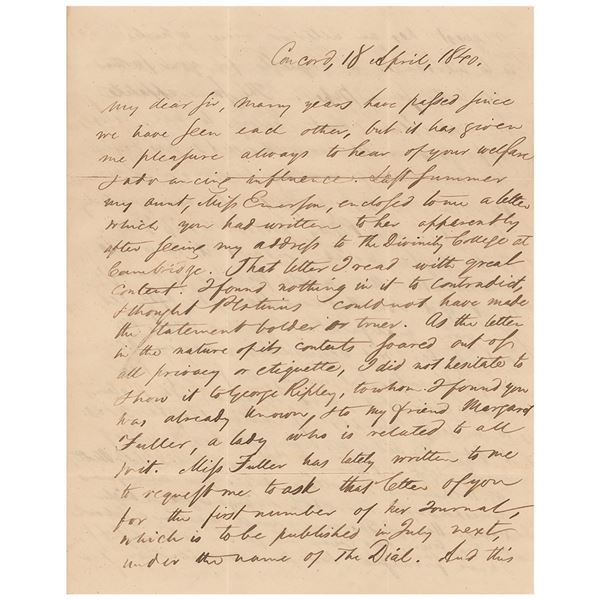 Concord, 18 April, 1840.
My dear Sir, Many years have passed since
we have seen each other, but it has given
me pleasure always to hear of your welfare
& advancing influence. Last summer
my aunt, Miss Emerson, enclosed to me a letter
which you had written to her apparently
after seeing my address to the Divinity College at
Cambridge. That letter I read with great
content. I found nothing in it to contradict,
& thought Plotinus could not have made
the statement bolder or truer. As the letter
in the nature of its contents soared out of
all privacy or etiquette, I did not hesitate to
show it to George Ripley, to whom I found you
was already known, & to my friend Margaret
Fuller, a lady who is related to all
wit. Miss Fuller has lately written to me
to request me to ask that letter of you
for the first number of her Journal,
which is to be published in July next,
under the name of The Dial. And this